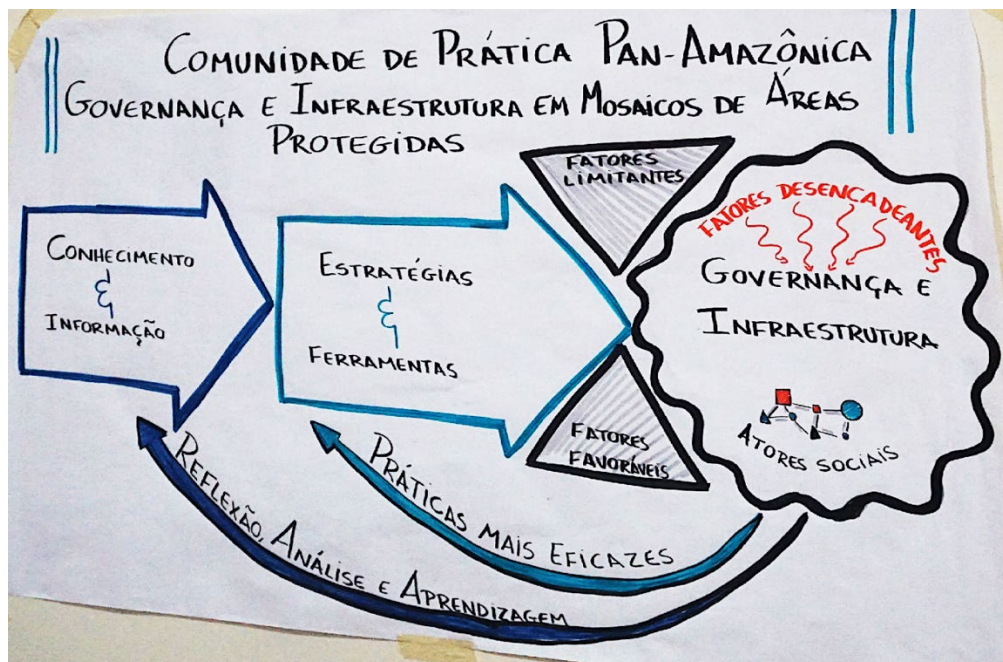 COMUNIDADE DE PRÁTICA PAN-AMAZÔNICA
GOVERNANÇA E INFRAESTRUTURA EM MOSAICOS DE ÁREAS
PROTEGIDAS
CONHECIMENTO
&
INFORMAÇÃO
ESTRATÉGIAS
&
FERRAMENTAS
FATORES
LIMITANTES
FATORES
FAVORÁVEIS
FATORES DESENCADEANTES
GOVERNANÇA E
INFRAESTRUTURA
ATORES SOCIAIS
PRÁTICAS MAIS EFICAZES
REFLEXÃO, ANÁLISE E APRENDIZAGEM